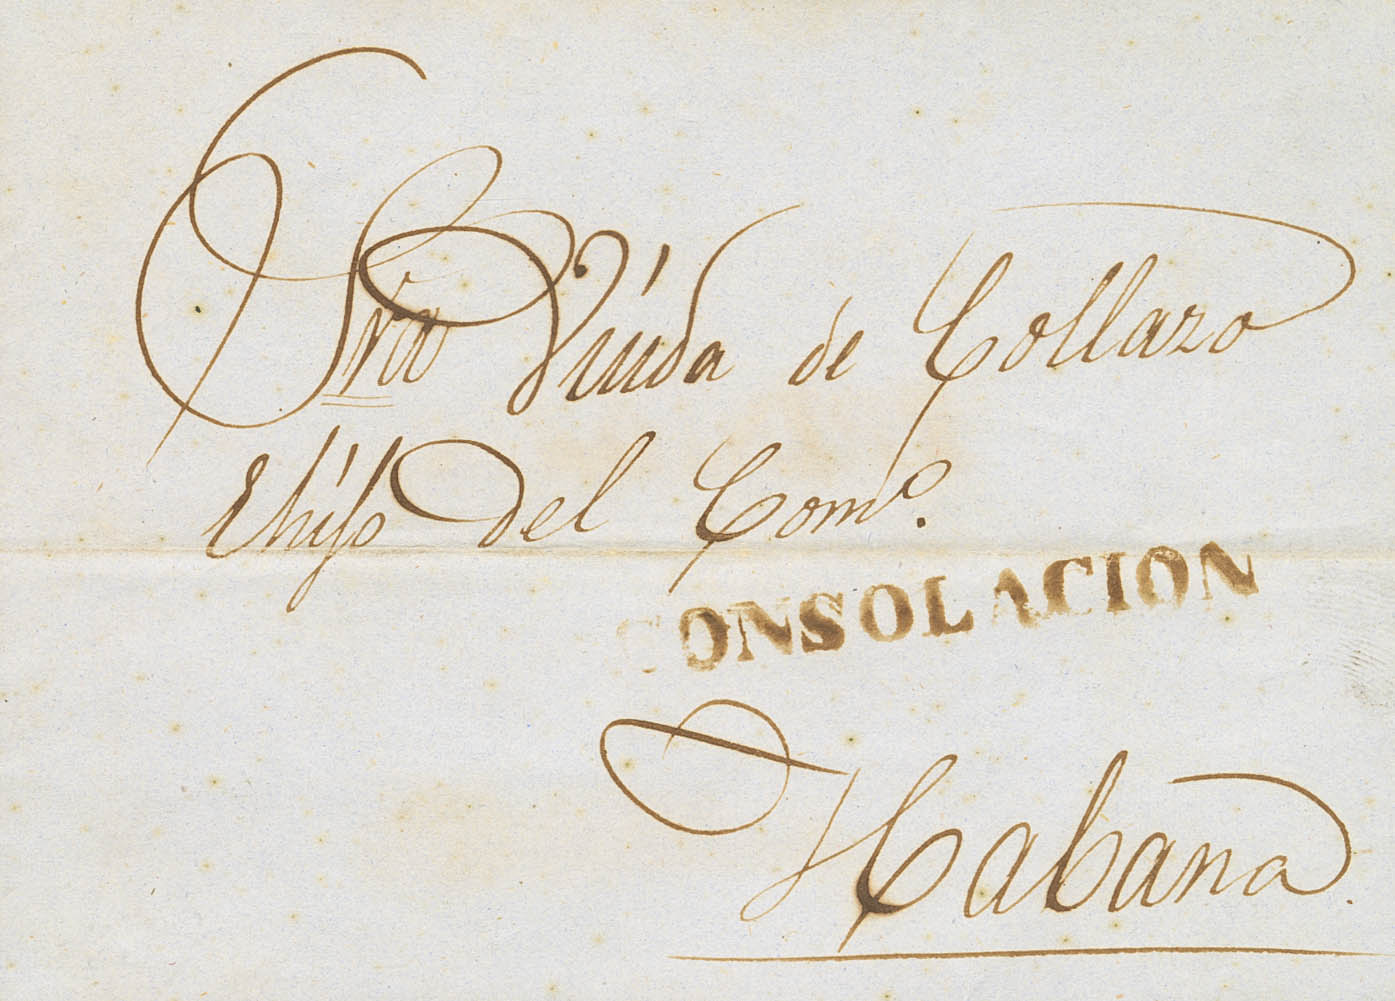 Sra Viuda de Collazo
E hijo del Como.
CONSOLACION
Habana.